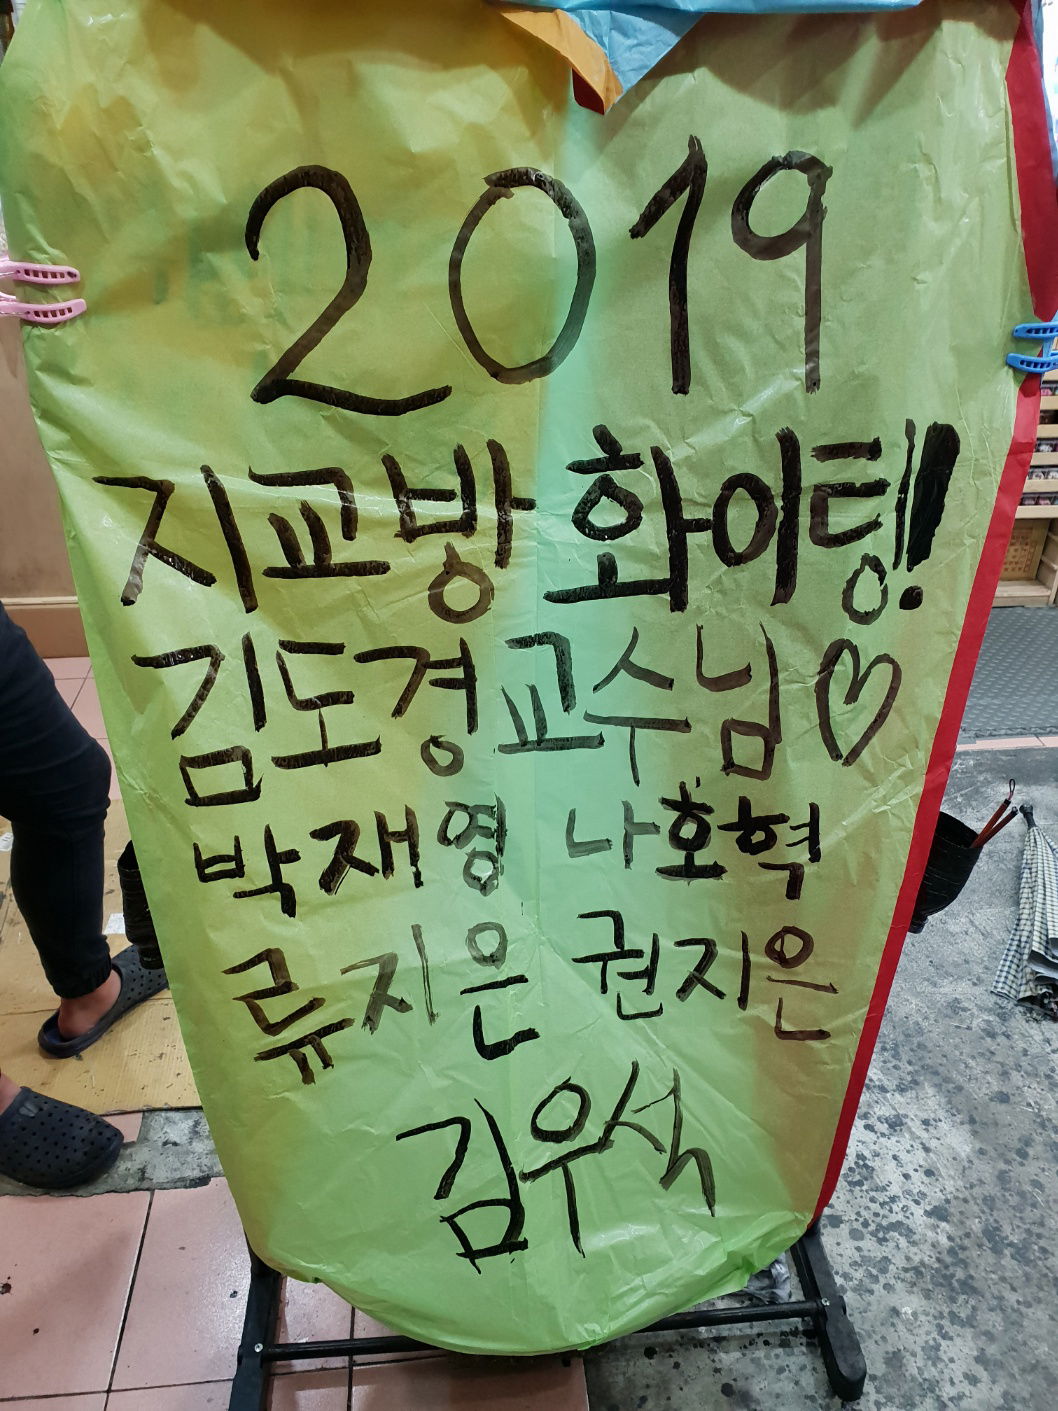 2019
지교방 화이팅!
김도경 교수님♡
박재영 나호혁
류지은 권지은
김우석